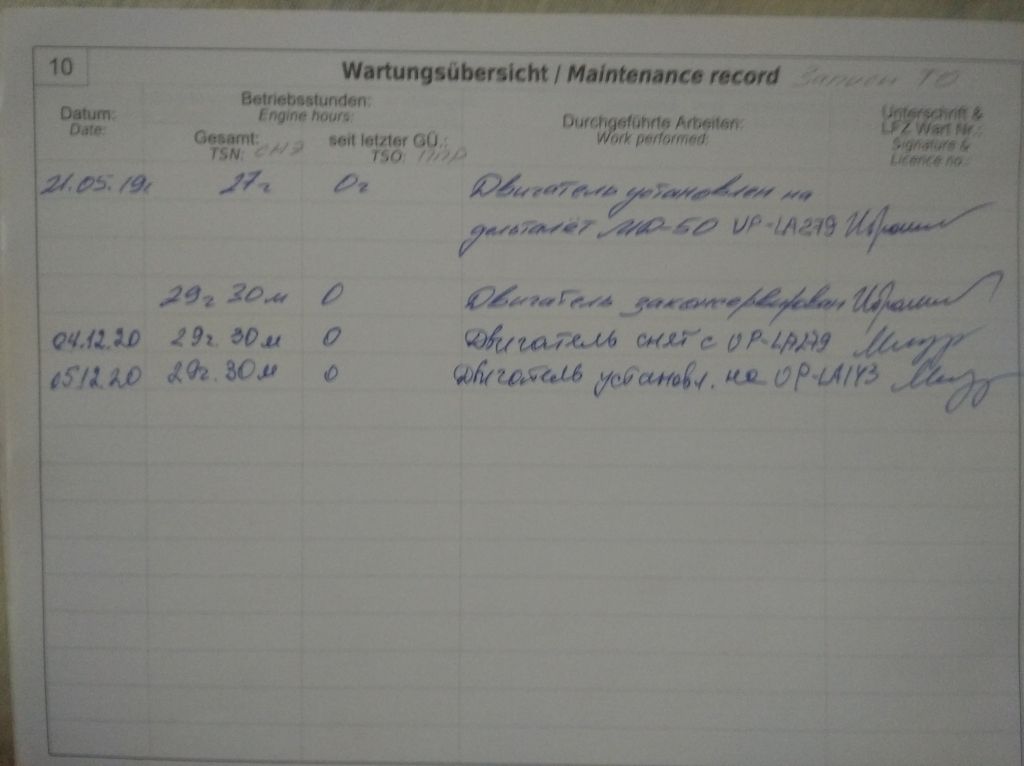 10
Wartungsübersicht / Maintenance record Записи ТО
Datum:
Date:
Betriebsstunden:
Engine hours:
Gesamt:
TSN: СНЭ
seit letzter GÜ.:
TSO: ППР
Durchgeführte Arbeiten:
Work performed:
Unterschrift &
LFZ Wart Nr.:
Signature &
Licence no.:
21.05.19г 27г 0г Двигатель установлен на
дельталёт МД-50 UP-LA279
29г 30м 0 Двигатель законсервирован
04.12.20 29г. 30м 0 Двигатель снят с UP-LA279
05.12.20 29г. 30м 0 Двигатель установл. на UP-LA143